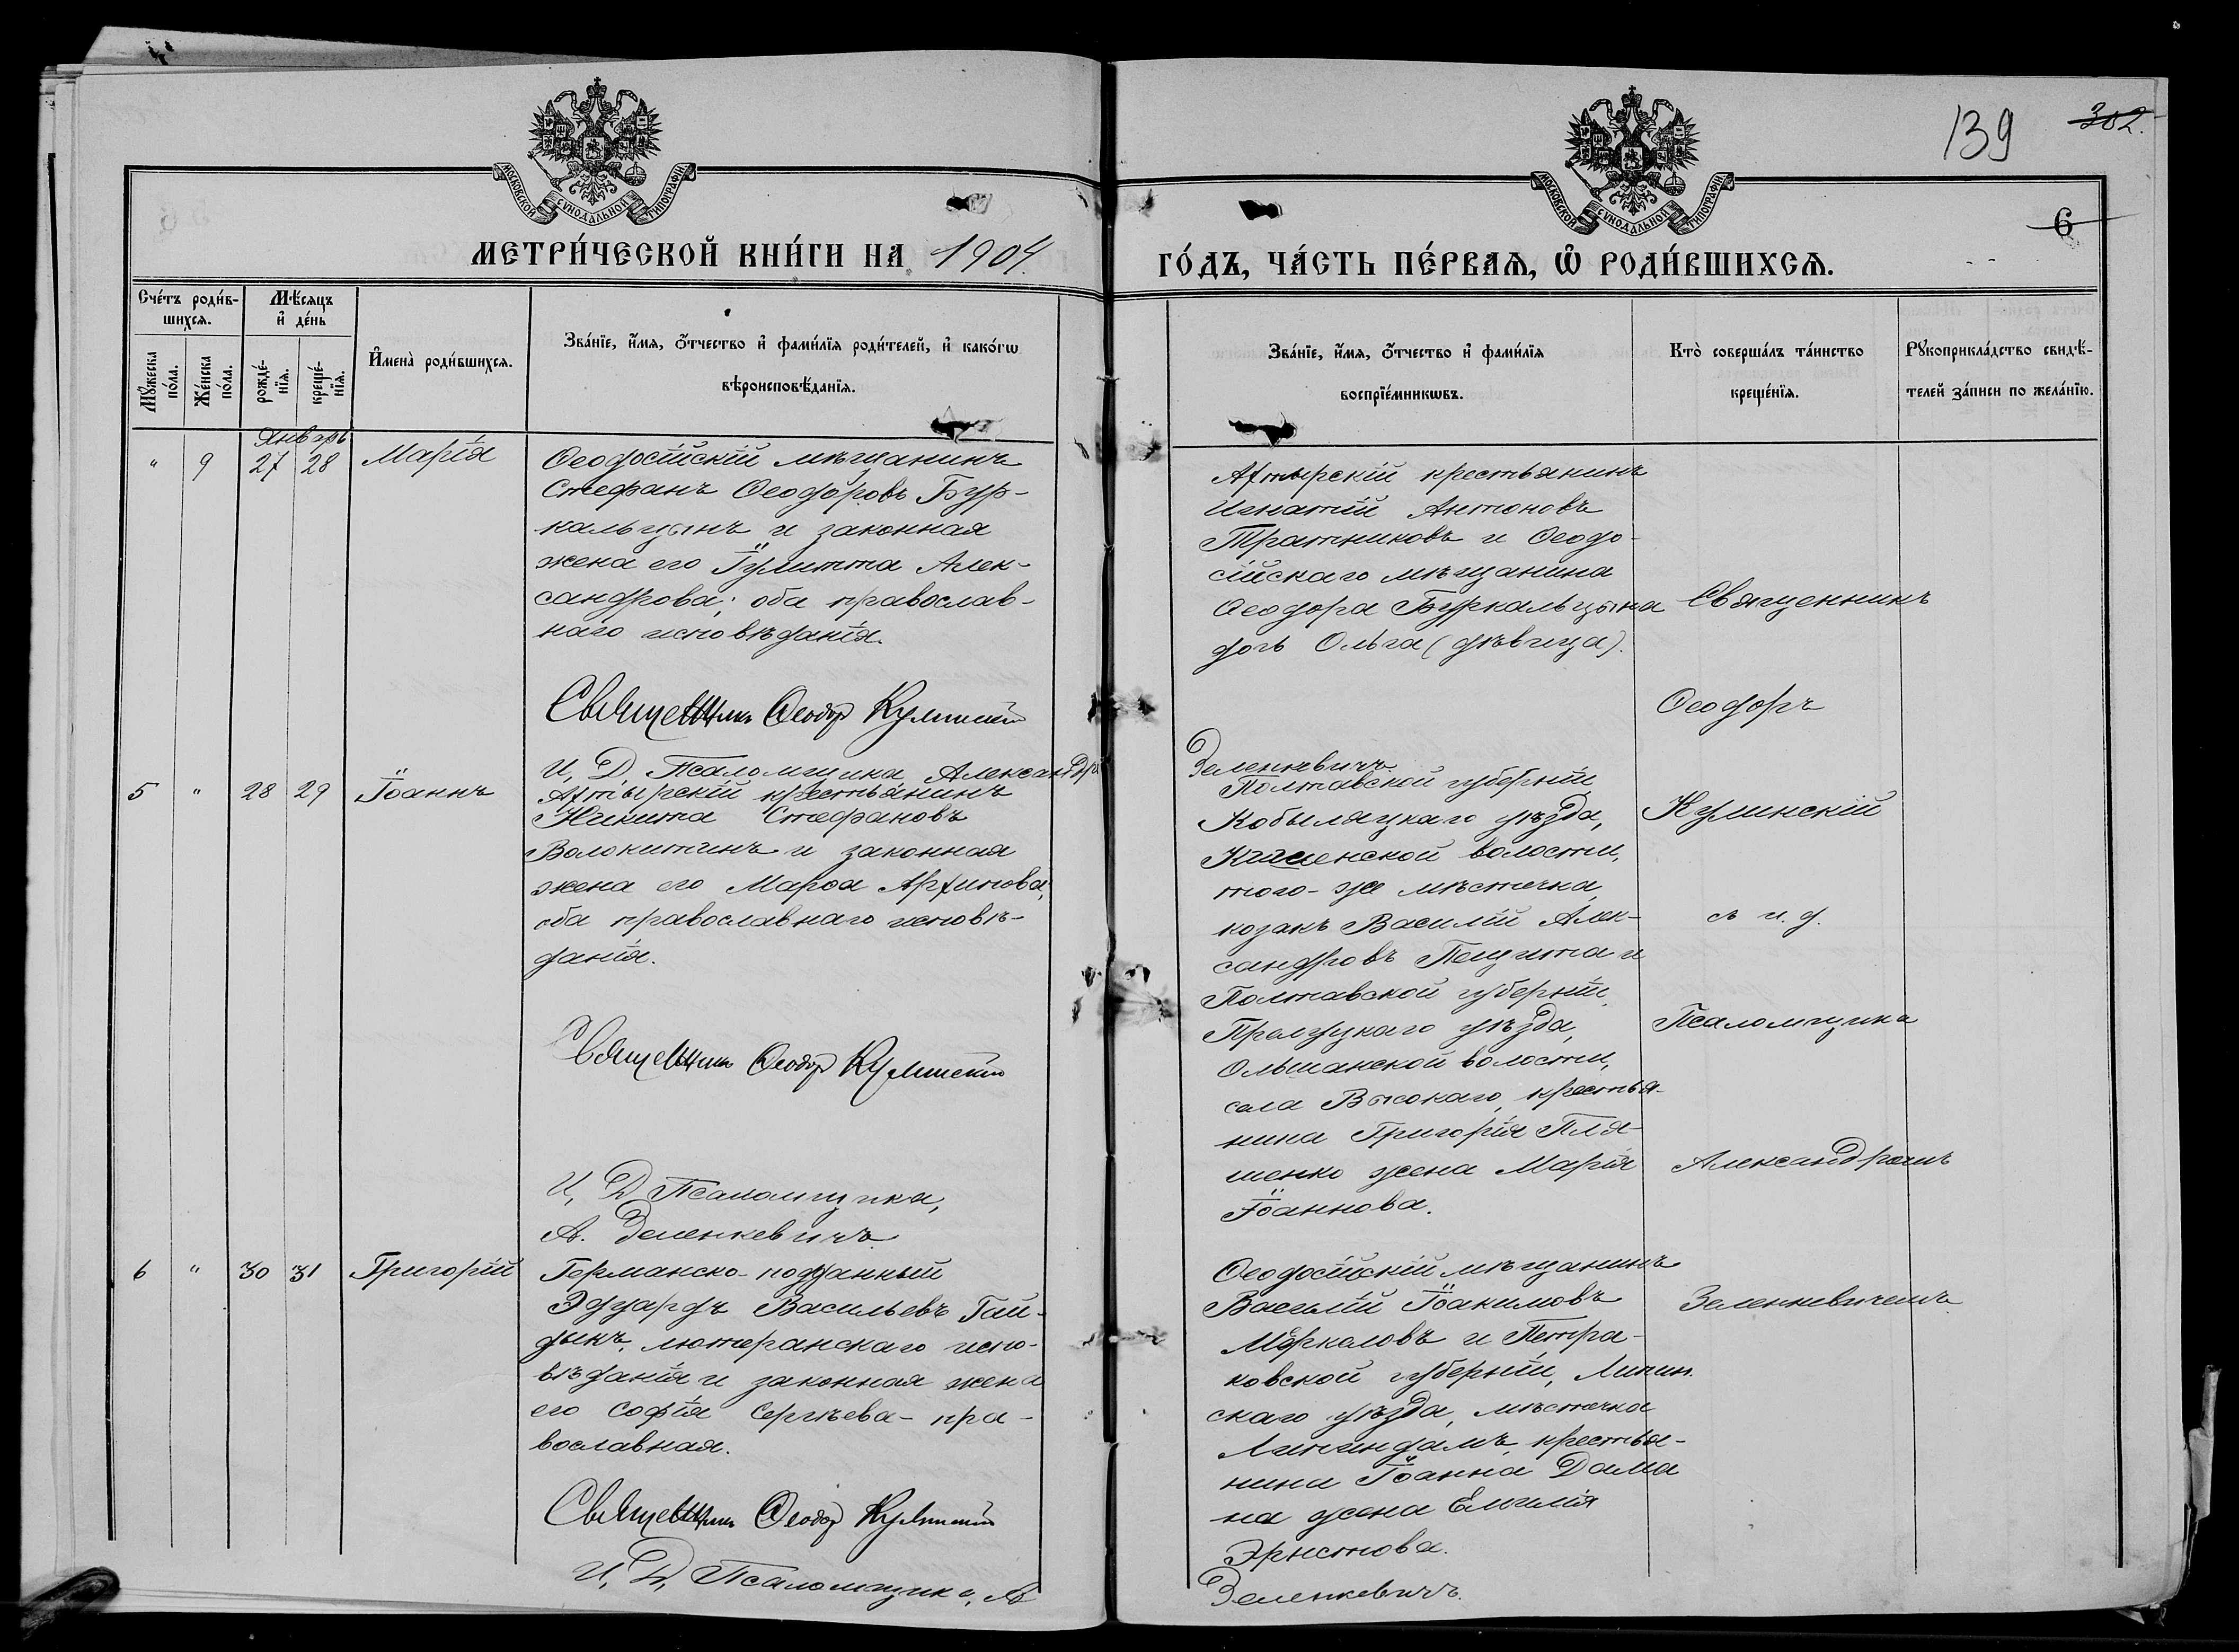 139 302.
МОСКОВСКОЙ СУНОДАЛЬНОЙ ТИПОГРАФІИ
МОСКОВСКОЙ СУНОДАЛЬНОЙ ТИПОГРАФІИ
6
МЕТРИ́ЧЕСКОЙ КНИ́ГИ НА 1904.
ГО́ДЪ, ЧА́СТЬ ПЕ́РВАѦ, Ѡ РОДИ́ВШИХСѦ.
Сче́тъ роди́в-
шихсѧ.
Мѣ́сѧцъ
и҆ де́нь
Мꙋ́жеска
по́ла.
Же́нска
по́ла.
рожде́-
нїѧ.
креще́-
нїѧ.
И҆мена̀ роди́вшихсѧ.
Зва́нїе, и҆́мѧ, ѻ҆́тчество и҆ фами́лїѧ роди́телей, и҆ како́гѡ
вѣроисповѣ́данїѧ.
Зва́нїе, и҆́мѧ, ѻ҆́тчество и҆ фами́лїѧ
воспрїе́мникѡвъ.
Кто̀ соверша́лъ та́инство
креще́нїѧ.
Рꙋкоприкла́дство свидѣ́-
телей за́писи по жела́нїю.
Январь
" 9 27 28 Марія
Ѳеодосійскій мѣщанинъ
Стефанъ Ѳеодоровъ Бур-
кальцынъ и законная
жена его Іулитта Алек-
сандрова; оба православ-
наго исповѣданія.
Священникъ Ѳеодоръ Кулинскій
И. Д. Псаломщика Александръ
Ахтырскій крестьянинъ
Игнатій Антоновъ
Тратниковъ и Ѳеодо-
сійскаго мѣщанина
Ѳеодора Буркальцына
дочь Ольга (дѣвица).
Зеленкевичъ
Священникъ
Ѳеодоръ
Кулинскій
съ и. д.
Псаломщика
Александромъ
Зеленкевичемъ
5 " 28 29 Іоаннъ
Ахтырскій крестьянинъ
Никита Стефановъ
Волокитинъ и законная
жена его Марѳа Архипова;
оба православнаго исповѣ-
данія.
Священникъ Ѳеодоръ Кулинскій
И. Д. Псаломщика,
А. Зеленкевичъ
Полтавской губерніи
Кобыляцкаго уѣзда,
Кишенской волости,
того-же мѣстечка
козакъ Василій Алек-
сандровъ Пещита и
Полтавской губерніи
Прилуцкаго уѣзда,
Ольшанской волости,
села Высокаго, крестья-
нина Григорія Пля-
шенко жена Марія
Іоаннова.
6 " 30 31 Григорій
Германско-подданный
Эдуардъ Васильевъ Гай-
дынъ, лютеранскаго испо-
вѣданія и законная жена
его Софія Сергѣева - пра-
вославная.
Священникъ Ѳеодоръ Кулинскій
И. Д. Псаломщика, А.
Ѳеодосійскій мѣщанинъ
Василій Іоакимовъ
Меркаловъ и Петра-
ковской губерніи, Липин
скаго уѣзда, мѣстечка
крестья-
нина Іоанна Дама
на жена Емилія
Эрнстова.
Зеленкевичъ.